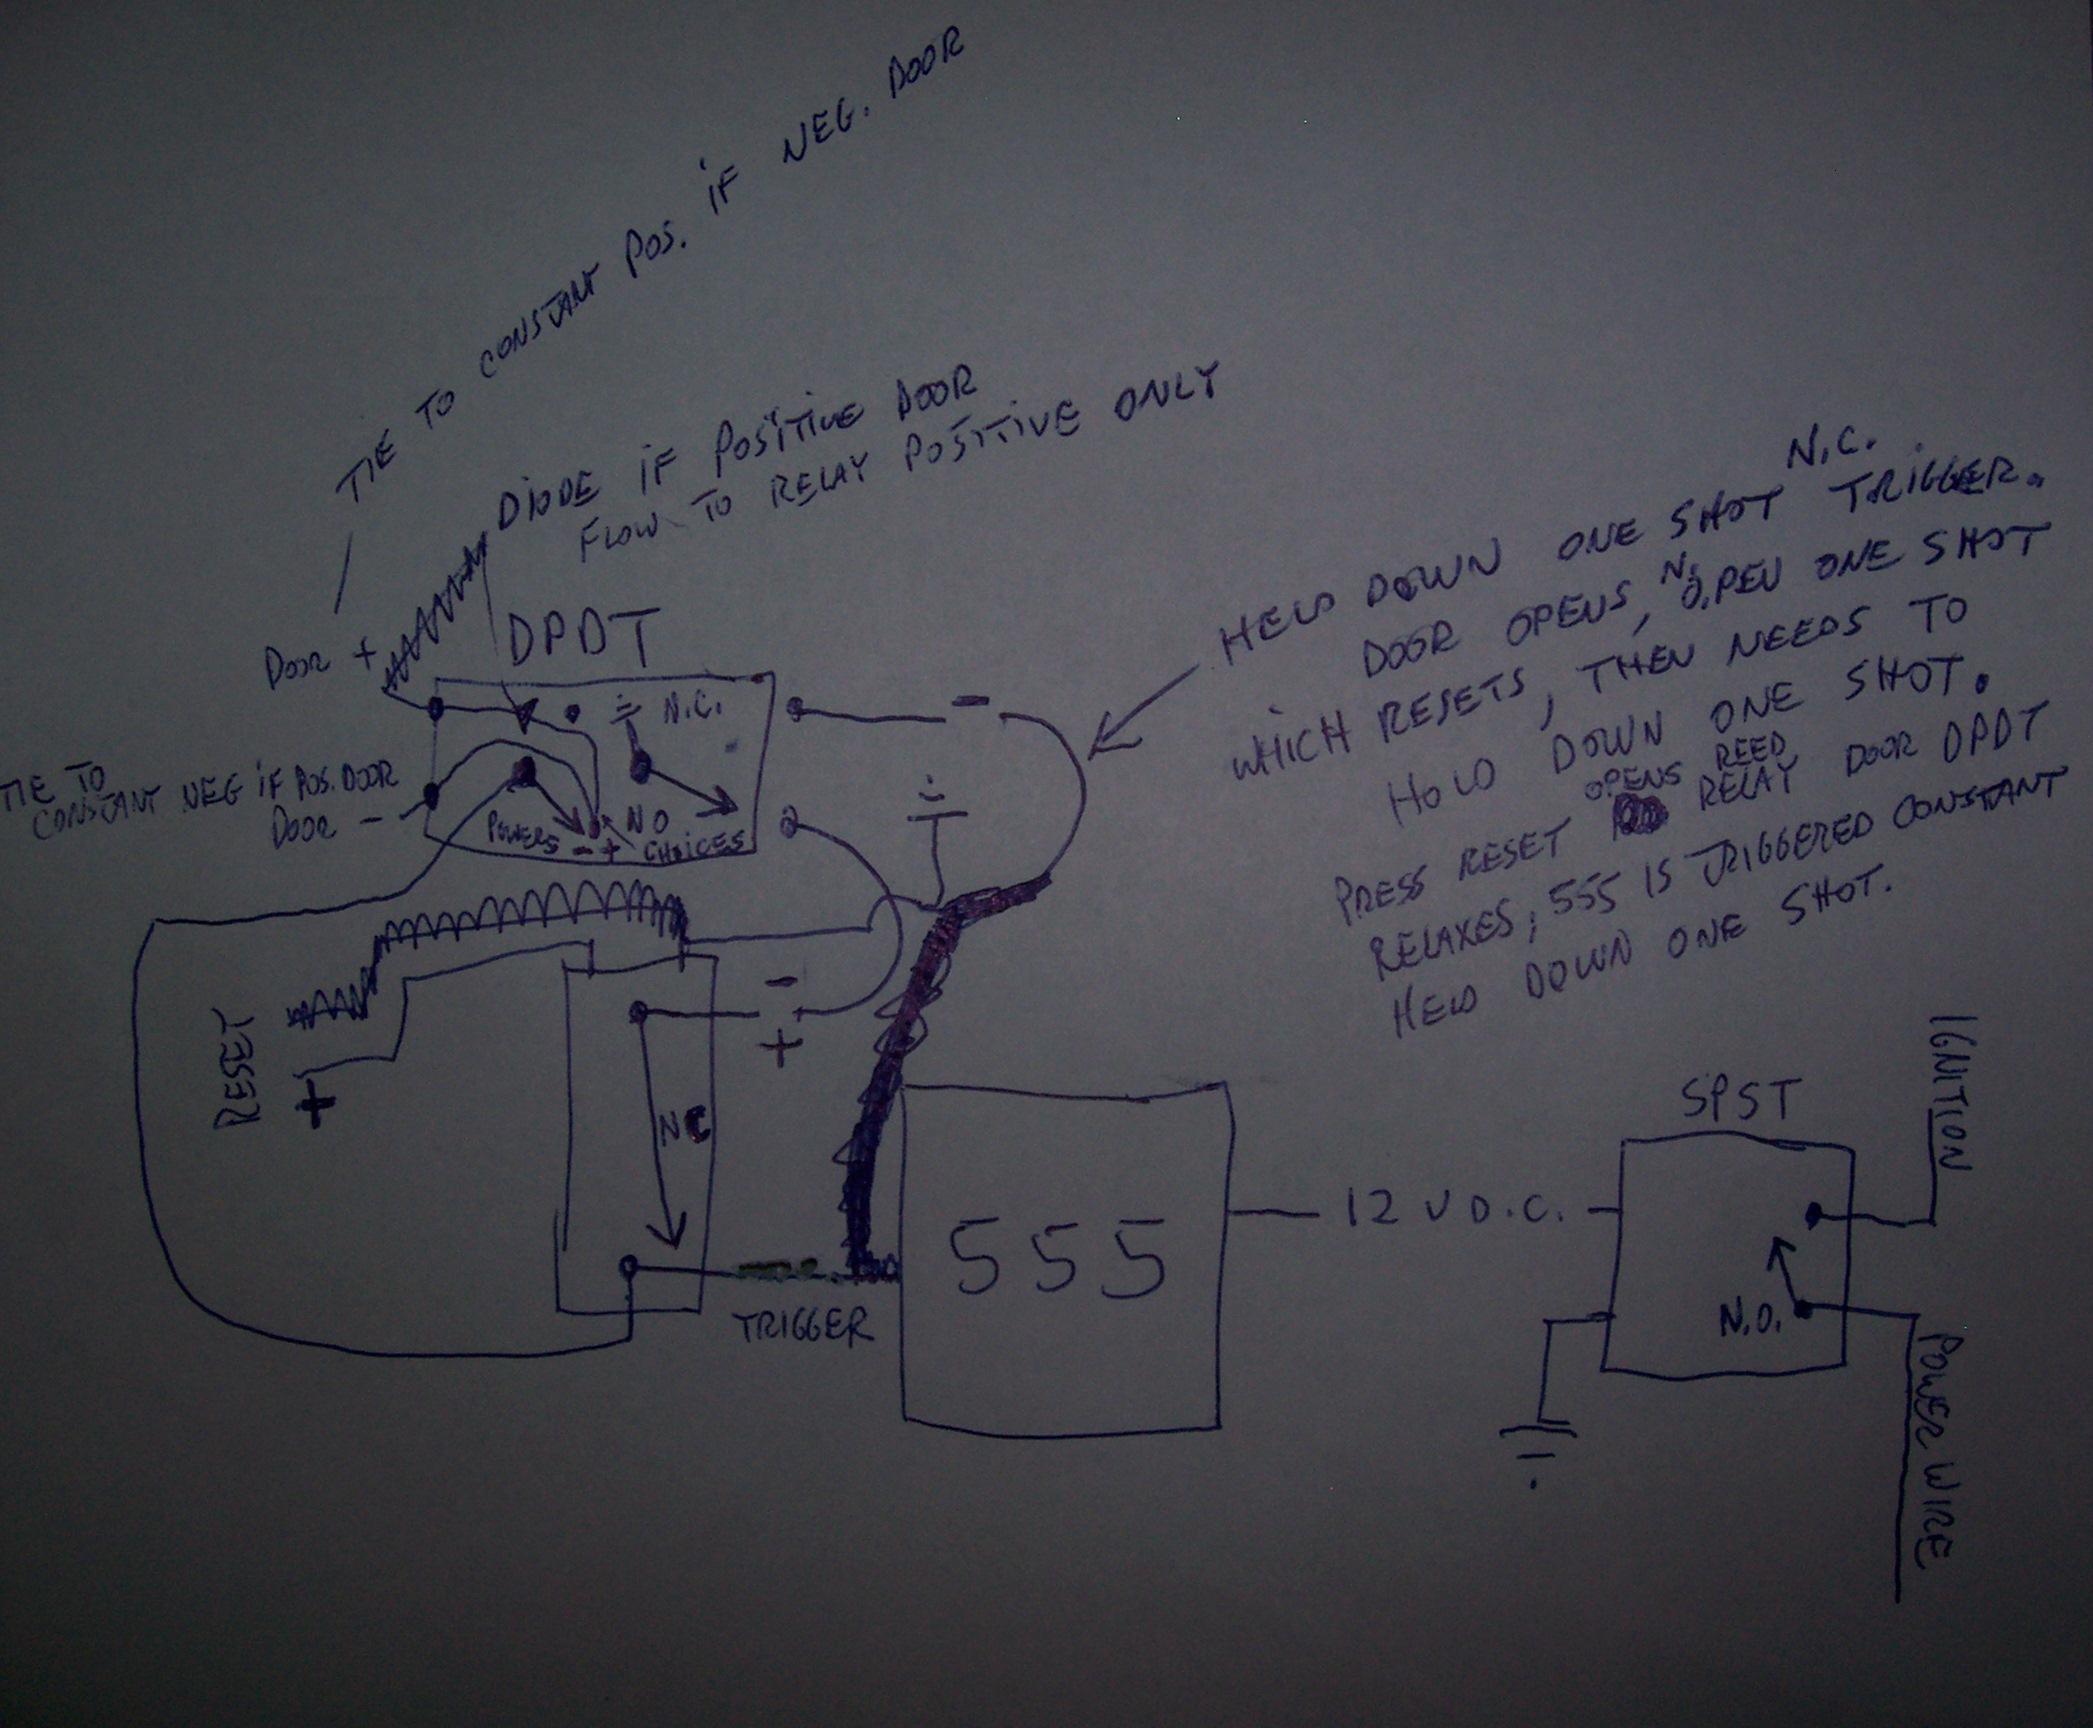 TIE TO CONSTANT POS. iF NEG. DOOR
DiODE iF POSiTiVE DOOR
FLOW TO RELAY POSiTiVE ONLY
N.C.
HELD DOWN ONE SHOT TRiGGER.
DOOR OPENS, N.O.PEN ONE SHOT
WHiCH RESETS, THEN NEEDS TO
HOLD DOWN ONE SHOT.
OPENS REED
PRESS RESET RELAY DOOR DPDT
RELAXES; 555 IS TRIGGERED CONSTANT
HELD DOWN ONE SHOT.
DOOR +
DPDT
N.C.
-
TIE TO
CONSTANT NEG iF POS. DOOR
DOOR -
POWERS - +
NO
CHOiCES
RESET
+
-
+
NC
TRIGGER
555
12 V D.C.
SPST
N.O.
IGNITION
POWER WIRE